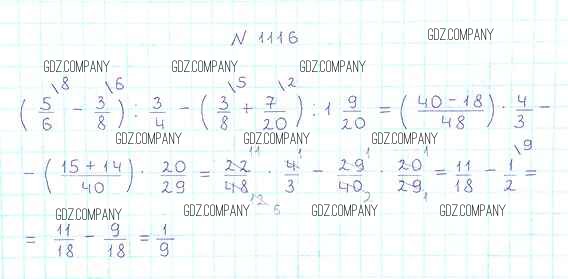 N 1116
GDZ.COMPANY
GDZ.COMPANY GDZ.COMPANY GDZ.COMPANY
(5/6 \8 − 3/8 \6) : 3/4 − (3/8 \5 + 7/20 \2) : 1 9/20 = ((40 − 18)/48) · 4/3 −
GDZ.COMPANY GDZ.COMPANY GDZ.COMPANY
− ((15 + 14)/40) · 20/29 = 22/48 · 4/3 − 29/40 · 20/29 = 11/18 − 1/2 \9 =
GDZ.COMPANY GDZ.COMPANY GDZ.COMPANY GDZ.COMPANY
= 11/18 − 9/18 = 1/9